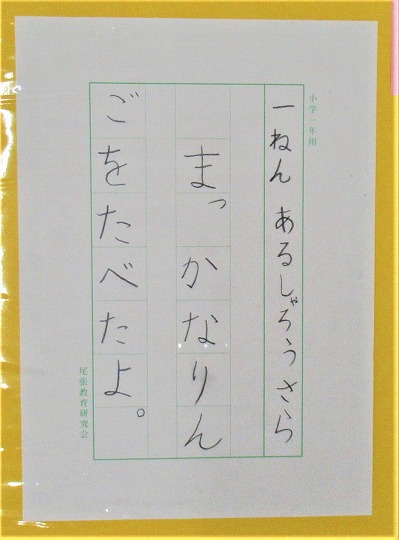 小学一年用
一ねん あるしゃろうさら
まっかなりん
ごをたべたよ。
尾張教育研究会